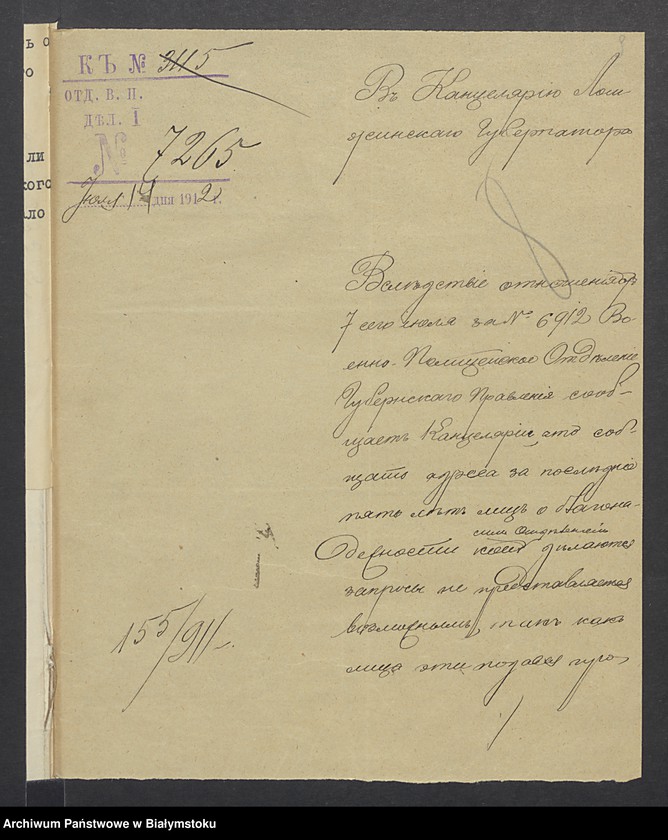 ь о
го
ли
кого
ло
КЪ № 3115
ОТД. В. П.
ДѢЛ. I
№ 7265
Июля 14 дня 1912 г.
Въ Канцелярію Лом-
жинскаго Губернатора
Вслѣдствіе отношенія отъ
7 сего іюля за № 6912 Во-
енно-Полицейское Отдѣленіе
Губернскаго Правленія сооб-
щаетъ Канцеляріи, что сооб-
щать адреса за послѣдніе
пять лѣтъ лицъ о благона-
симъ Отдѣленіемъ
дежности коихъ дѣлаются
запросы не представляется
возможнымъ, такъ какъ
лица эти подавая про-
155/911
Archiwum Państwowe w Białymstoku